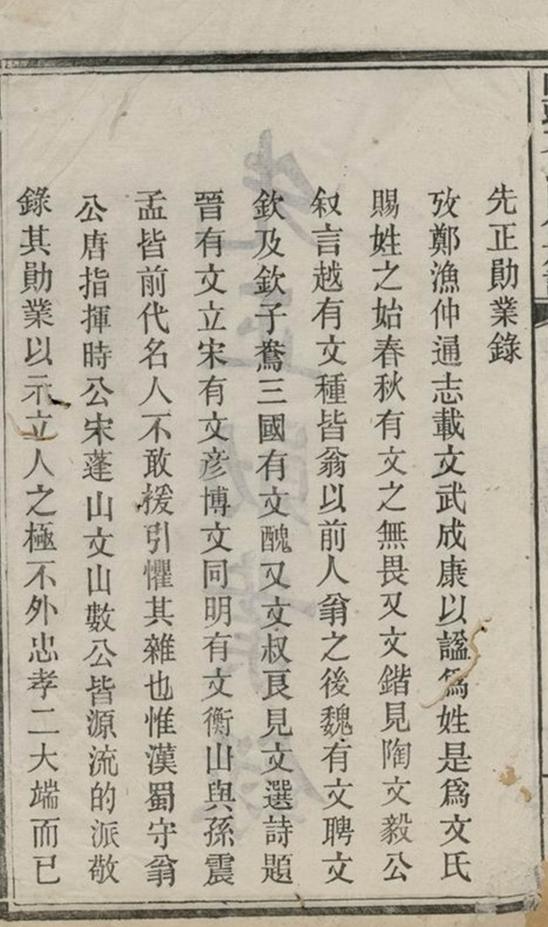 先正勛業錄
攷鄭漁仲通志載文武成康以諡爲姓是爲文氏
賜姓之始春秋有文之無畏又文鍇見陶文毅公
叙言越有文種皆翁以前人翁之後魏有文聘文
欽及欽子鴦三國有文醜又文叔良見文選詩題
晉有文立宋有文彥博文同明有文衡山與孫震
孟皆前代名人不敢援引懼其雜也惟漢蜀守翁
公唐指揮時公宋蓬山文山數公皆源流的派敬
錄其勛業以示立人之極不外忠孝二大端而已